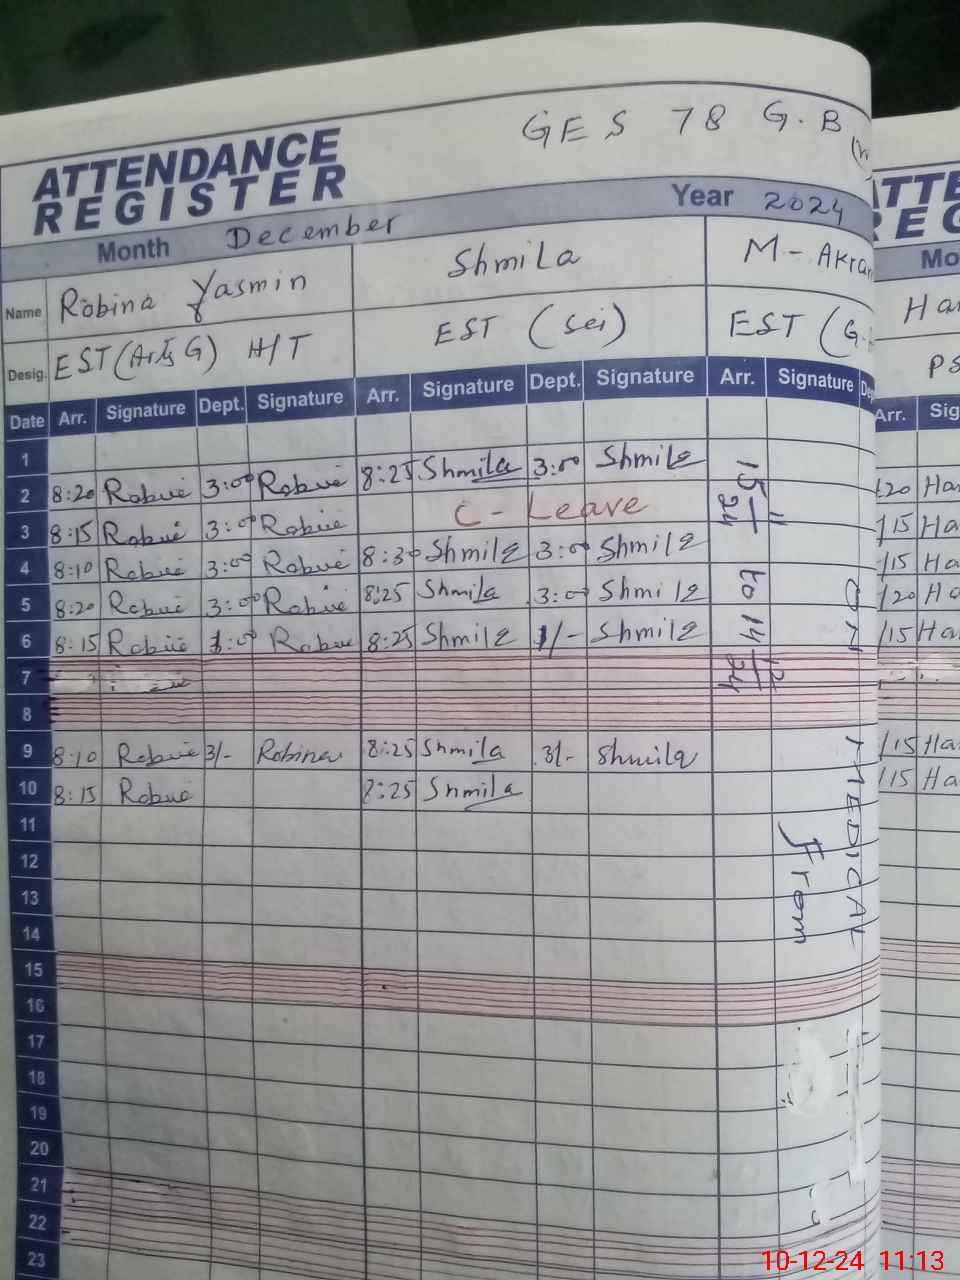 GES 78 G.B
ATTENDANCE
REGISTER
Month December Year 2024
Name Robina Yasmin ShmiLa M-Akra
Desig. EST(Arts G) H/T EST (Sci) EST (G.
Date Arr. Signature Dept. Signature Arr. Signature Dept. Signature Arr. Signature Dep
1
2 8:20 Robine 3:00 Robine 8:25 Shmila 3:00 Shmila
3 8:15 Robine 3:00 Robine C-Leave
4 8:10 Robine 3:00 Robine 8:30 Shmila 3:00 Shmila
5 8:20 Robine 3:00 Robine 8:25 Shmila 3:00 Shmila
6 8:15 Robine 1:00 Robine 8:25 Shmila 1/- Shmila
7
8
9 8:10 Robine 3/- Robina 8:25 Shmila 3/- Shmila
10 8:15 Robine 8:25 Shmila
11
12
13
14
15
16
17
18
19
20
21
22
23
ON MEDICAL
From
15 11/24 to 14 12/24
ATTE
REG
Mo
Ha
PS
Arr. Sig
20 Ha
15 Ha
15 Ha
20 Ha
15 Ha
15 Ha
15 Ha
10-12-24 11:13